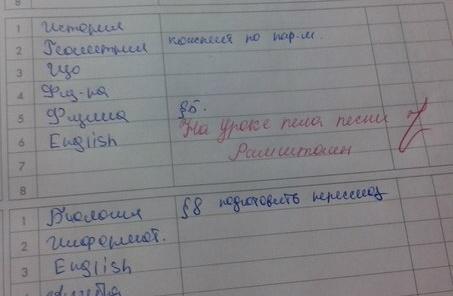 8
1 История
2 Геометрия конспект по пар-м.
3 ИЗО
4 Физ-ра
5 Физика §5.
6 English На уроке пела песни
7 Рамштайн
8
1 Биология §8 подготовить пересказ
2 Информат.
3 English